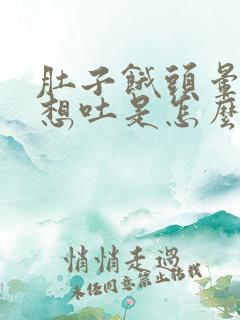 肚子餓頭暈
想吐是怎麼
悄悄走過
未經同意禁止轉載